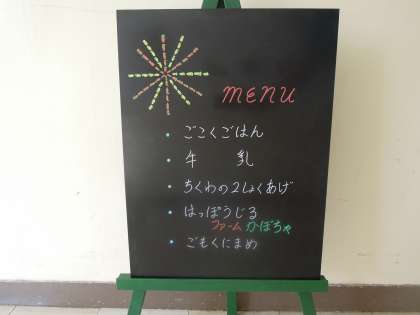 MENU
・ごこくごはん
・牛 乳
・ちくわの2しょくあげ
・はっぽうじる
ファーム かぼちゃ
・ごもくにまめ